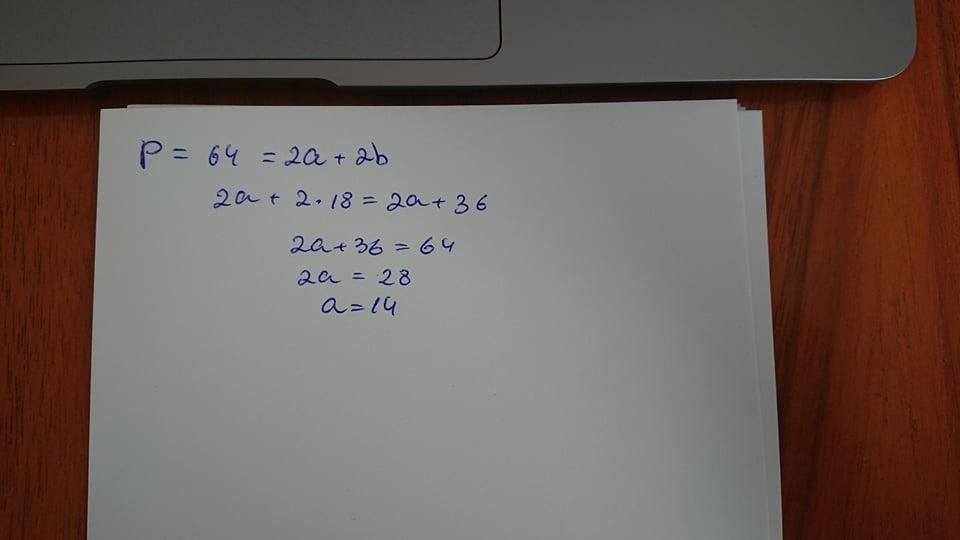 P = 64 = 2a + 2b
2a + 2·18 = 2a + 36
2a + 36 = 64
2a = 28
a = 14